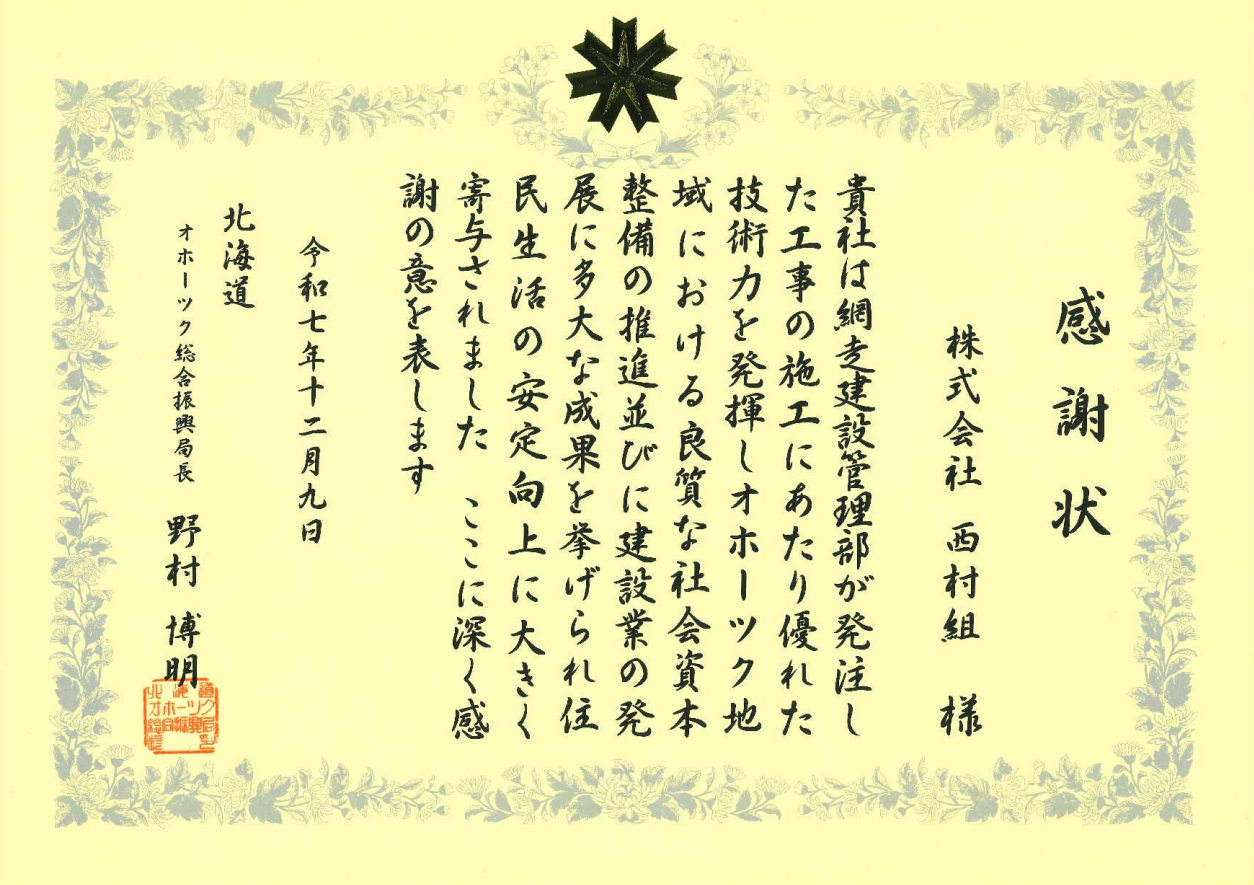 感謝状
株式会社 西村組 様
貴社は網走建設管理部が発注し
た工事の施工にあたり優れた
技術力を発揮しオホーツク地
域における良質な社会資本
整備の推進並びに建設業の発
展に多大な成果を挙げられ住
民生活の安定向上に大きく
寄与されました ここに深く感
謝の意を表します
令和七年十二月九日
北海道
オホーツク総合振興局長 野村 博明